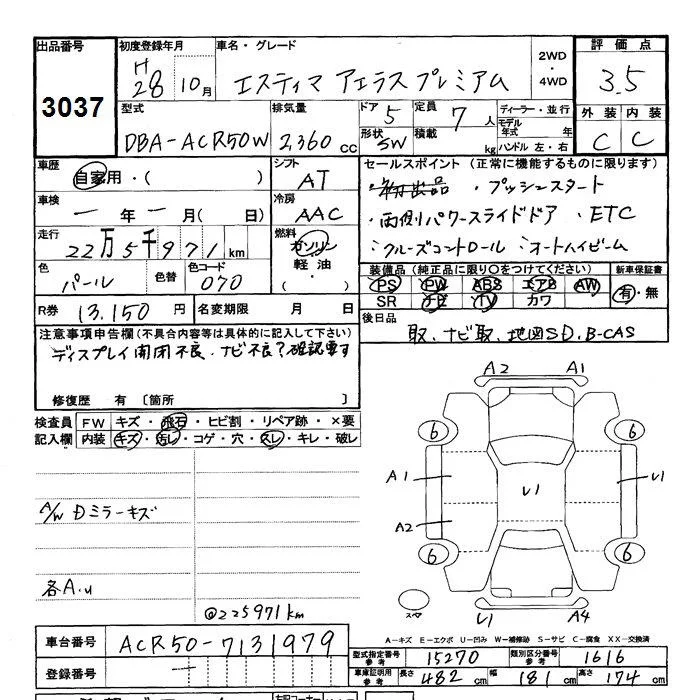 出品番号 初度登録年月 車名・グレード 2WD・4WD 評価点
3037 H28 10月 エスティマ アエラス プレミアム 3.5
型式 排気量 ドア 5 定員 7人 ディーラー・並行 外装 内装
DBA-ACR50W 2,360cc 形状 SW 積載 kg モデル年式 年 ハンドル 左・右 C C
車歴 自家用・( ) シフト AT セールスポイント (正常に機能するものに限ります)
・初出品 ・プッシュスタート
車検 ー年ー月(日) 冷房 AAC ・両側パワースライドドア ・ETC
走行 22万5千971km 燃料 ガソリン 軽油・( ) ・クルーズコントロール ・オートハイビーム
色 パール 色替 色コード 070 装備品 (純正品に限り○をつけてください) 新車保証書
PS PW ABS エアB AW 有・無
SR ナビ TV カワ
R券 13,150円 名変期限 月 日 後日品
取、ナビ取、地図SD、B-CAS
注意事項申告欄(不具合内容等は具体的に記入して下さい)
ディスプレイ開閉不良、ナビ不良?確認要す
修復歴 有 〔箇所 〕
検査員記入欄 FW キズ・飛石・ヒビ割・リペア跡・×要
内装 キズ・汚レ・コゲ・穴・スレ・キレ・破レ
A2 A1
6 6
A1 U1 U1
A/W Dミラーキズ
A2
6 6
各A.U
スペア
@225971km
U1 A4
A-キズ E-エクボ U-凹み W-補修跡 S-サビ C-腐食 XX-交換済
車台番号 ACR50-7131979
型式指定番号 参考 15270 類別区分番号 参考 1616
登録番号 ー 車庫証明用 参考 長さ 482cm 幅 181cm 高さ 174cm